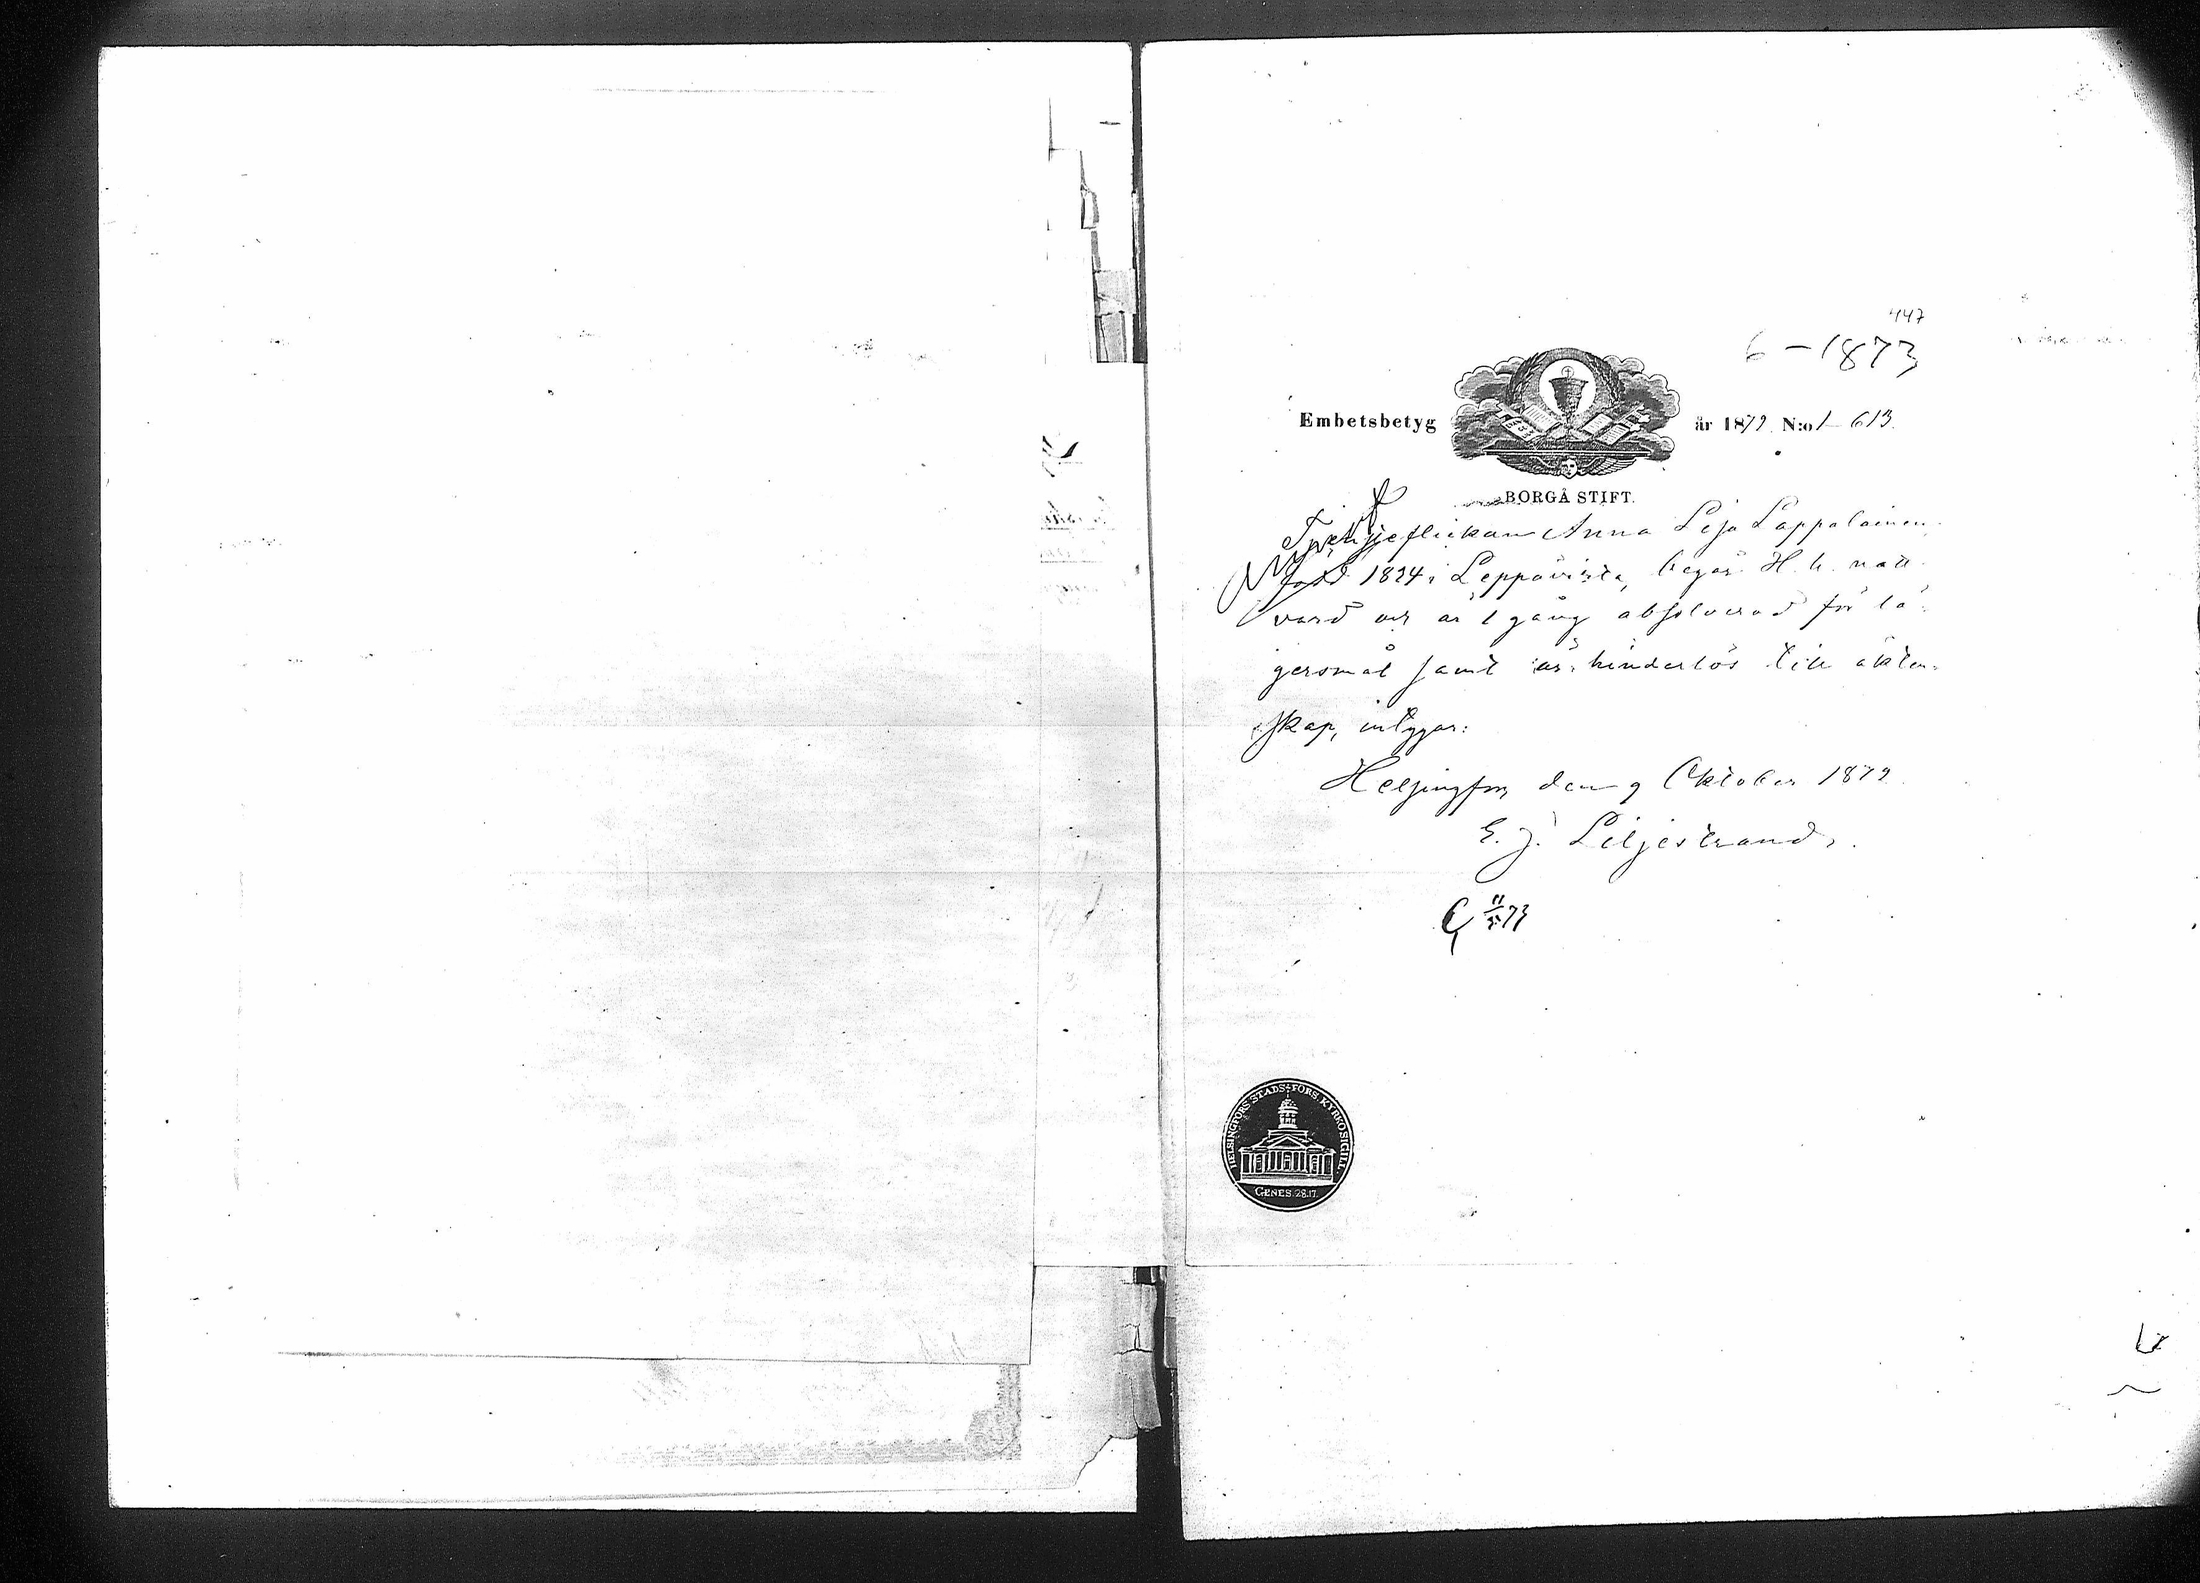 447
6 – 1873
Embetsbetyg år 1872 N:o 1–613.
BORGÅ STIFT.
Tjenstflickan Anna Lisa Lappalainen
född 1824 i Leppävirta, begår H. h. natt-
vard och är 1 gång absolverad för lä-
gersmål samt är hinderlös till äkten-
skap, intygar:
Helsingfors den 9 Oktober 1872
E. J. Liljestrand.
73
HELSINGFORS STADS FÖRS. KYRKOSIGILL.
GENES. 28.17.